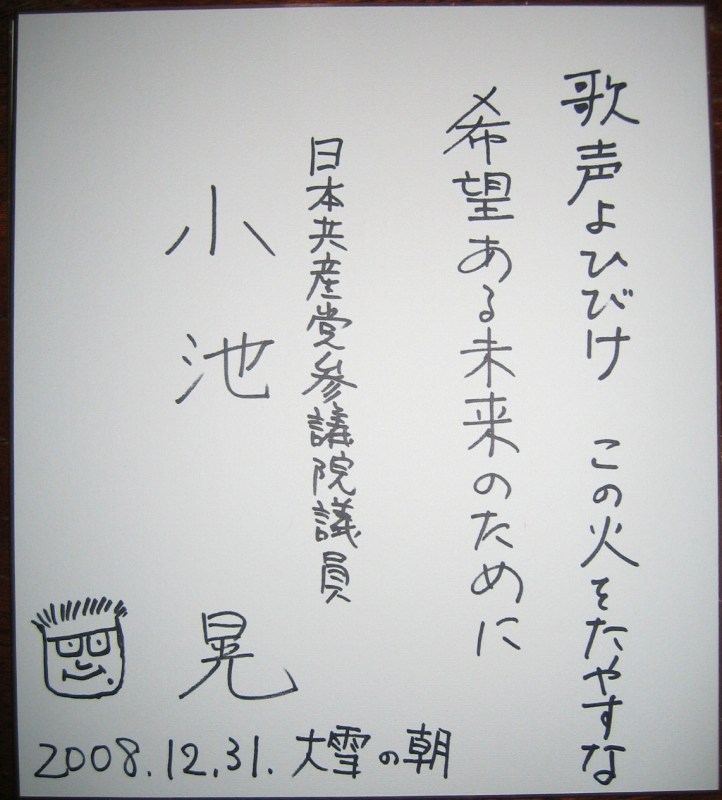 歌声よひびけ この火をたやすな
希望ある未来のために
日本共産党参議院議員
小池 晃
2008.12.31. 大雪の朝